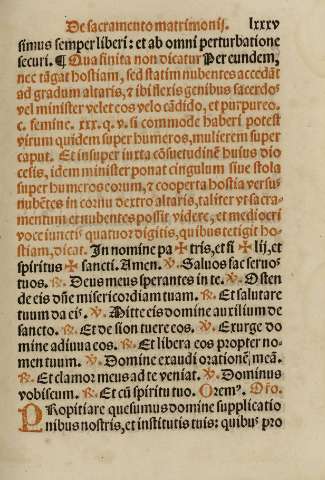 De sacramento matrimonij. lxxxv
simus semper liberi: et ab omni perturbatione
securi. ¶ Qua finita non dicatur Per eundem,
nec tãgat hostiam, sed statim nubentes accedãt
ad gradum altaris, et ibi flexis genibus sacerdos
vel minister velet eos velo cãdido, et purpureo.
c. femine. xxx. q. v. si commode haberi potest
virum quidem super humeros, mulierem super
caput. Et insuper iuxta cõsuetudinẽ huius dio
cesis, idem minister ponat cingulum siue stola
super humeros eorum, et cooperta hostia versus
nubẽtes in cornu dextro altaris, taliter vt sacra-
mentum et nubentes possit videre, et mediocri
voce iunctis quatuor digitis, quibus tetigit ho-
stiam, dicat. In nomine pa ✠ tris, et fi ✠ lij, et
spiritus ✠ sancti. Amen. ℣. Saluos fac seruos
tuos. ℟. Deus meus sperantes in te. ℣. Osten
de eis dñe misericordiam tuam. ℟. Et salutare
tuum da eis. ℣. Mitte eis domine auxilium de
sancto. ℟. Et de sion tuere eos. ℣. Exurge do
mine adiuua eos. ℟. Et libera eos propter no-
men tuum. ℣. Domine exaudi orationẽ meã.
℟. Et clamor meus ad te veniat. ℣. Dominus
vobiscum. ℟. Et cũ spiritu tuo. Oremꝰ. Oro.
PRopitiare quesumus domine supplicatio
nibus nostris, et institutis tuis: quibus pro